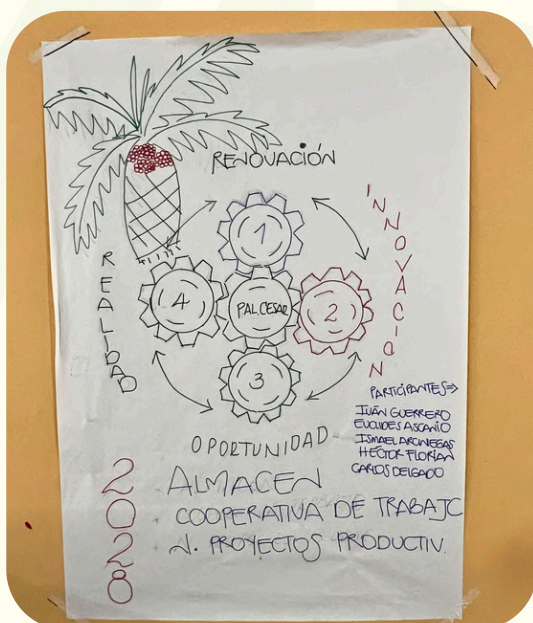 RENOVACIÓN
INNOVACIÓN
REALIDAD
1
2
3
4
PALCESAR
OPORTUNIDAD
PARTICIPANTES=>
IVÁN GUERRERO
EUCLIDES ASCANIO
ISMAEL ARCINEGAS
HÉCTOR FLORIAN
CARLOS DELGADO
2028
. ALMACEN
. COOPERATIVA DE TRABAJO
. N. PROYECTOS PRODUCTIV.